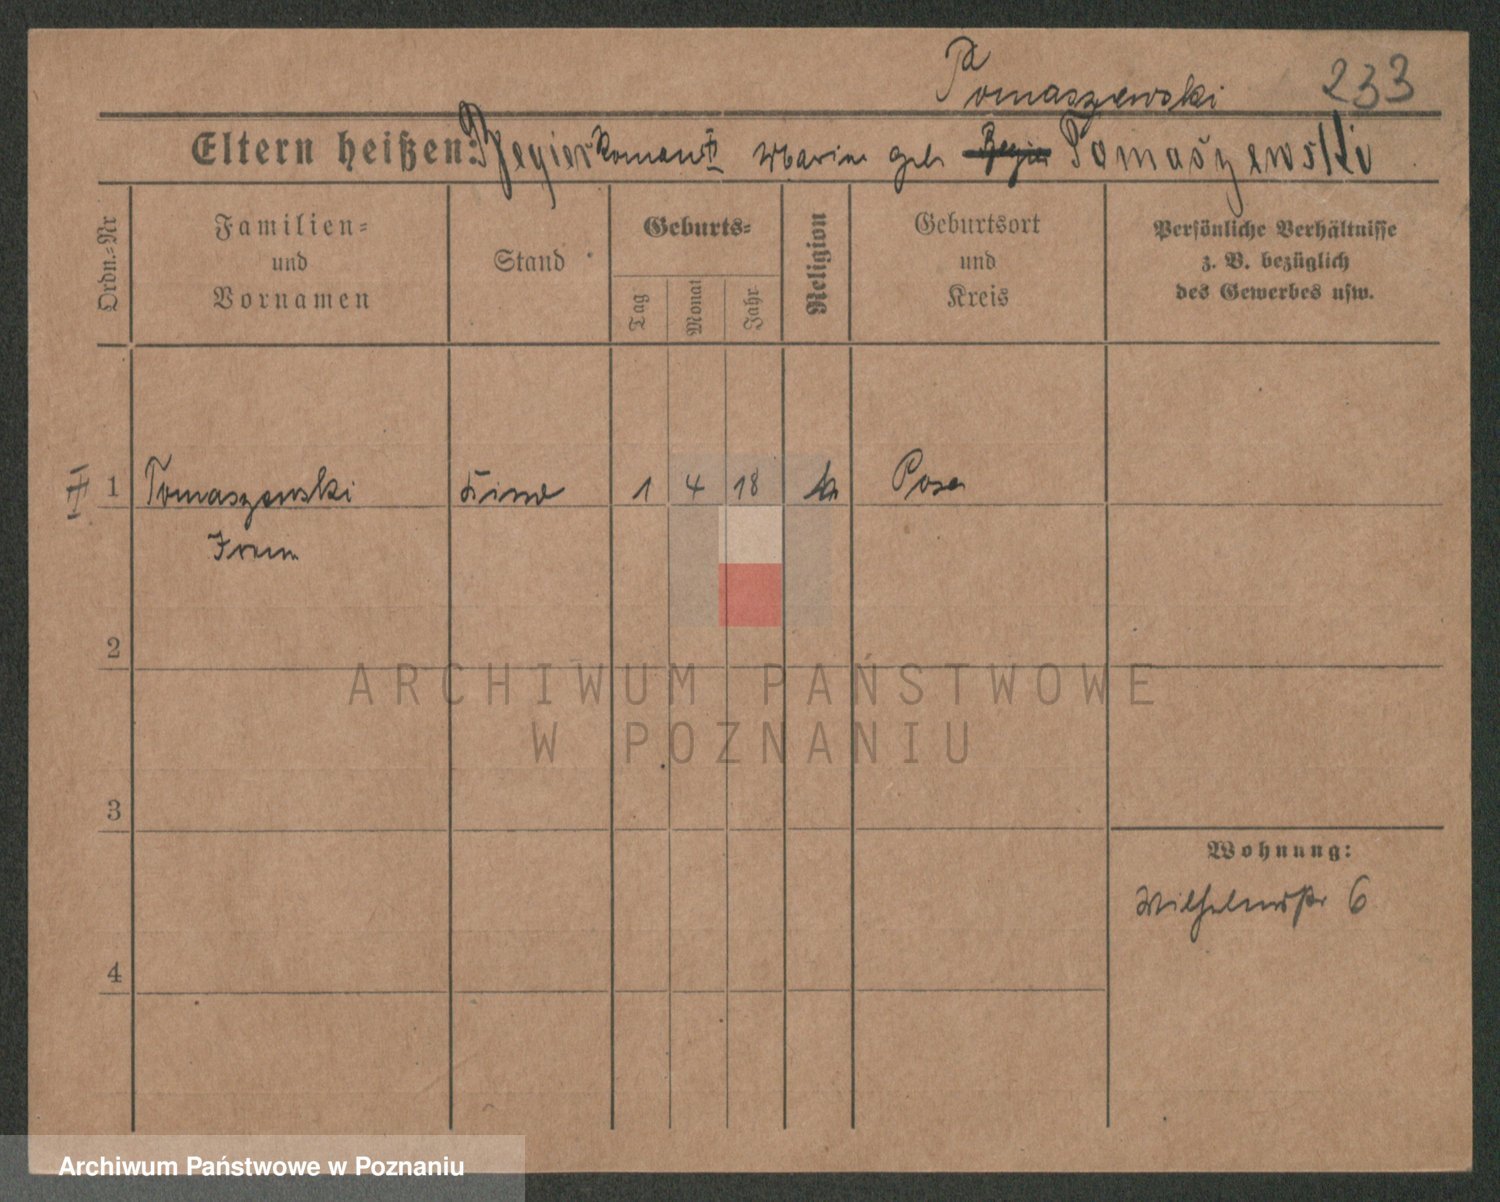 Tomaszewski 233
Eltern heißen: Regier Roman Maria geb Tomaszewski
Ordn.-Nr
Familien-
und
Vornamen
Stand
Geburts-
Tag
Monat
Jahr
Religion
Geburtsort
und
Kreis
Persönliche Verhältnisse
z. B. bezüglich
des Gewerbes usw.
1 Tomaszewski Kind 1 4 18 k Posen
2
3
4
Wohnung:
Wilhelmstr 6
ARCHIWUM PAŃSTWOWE
W POZNANIU
Archiwum Państwowe w Poznaniu